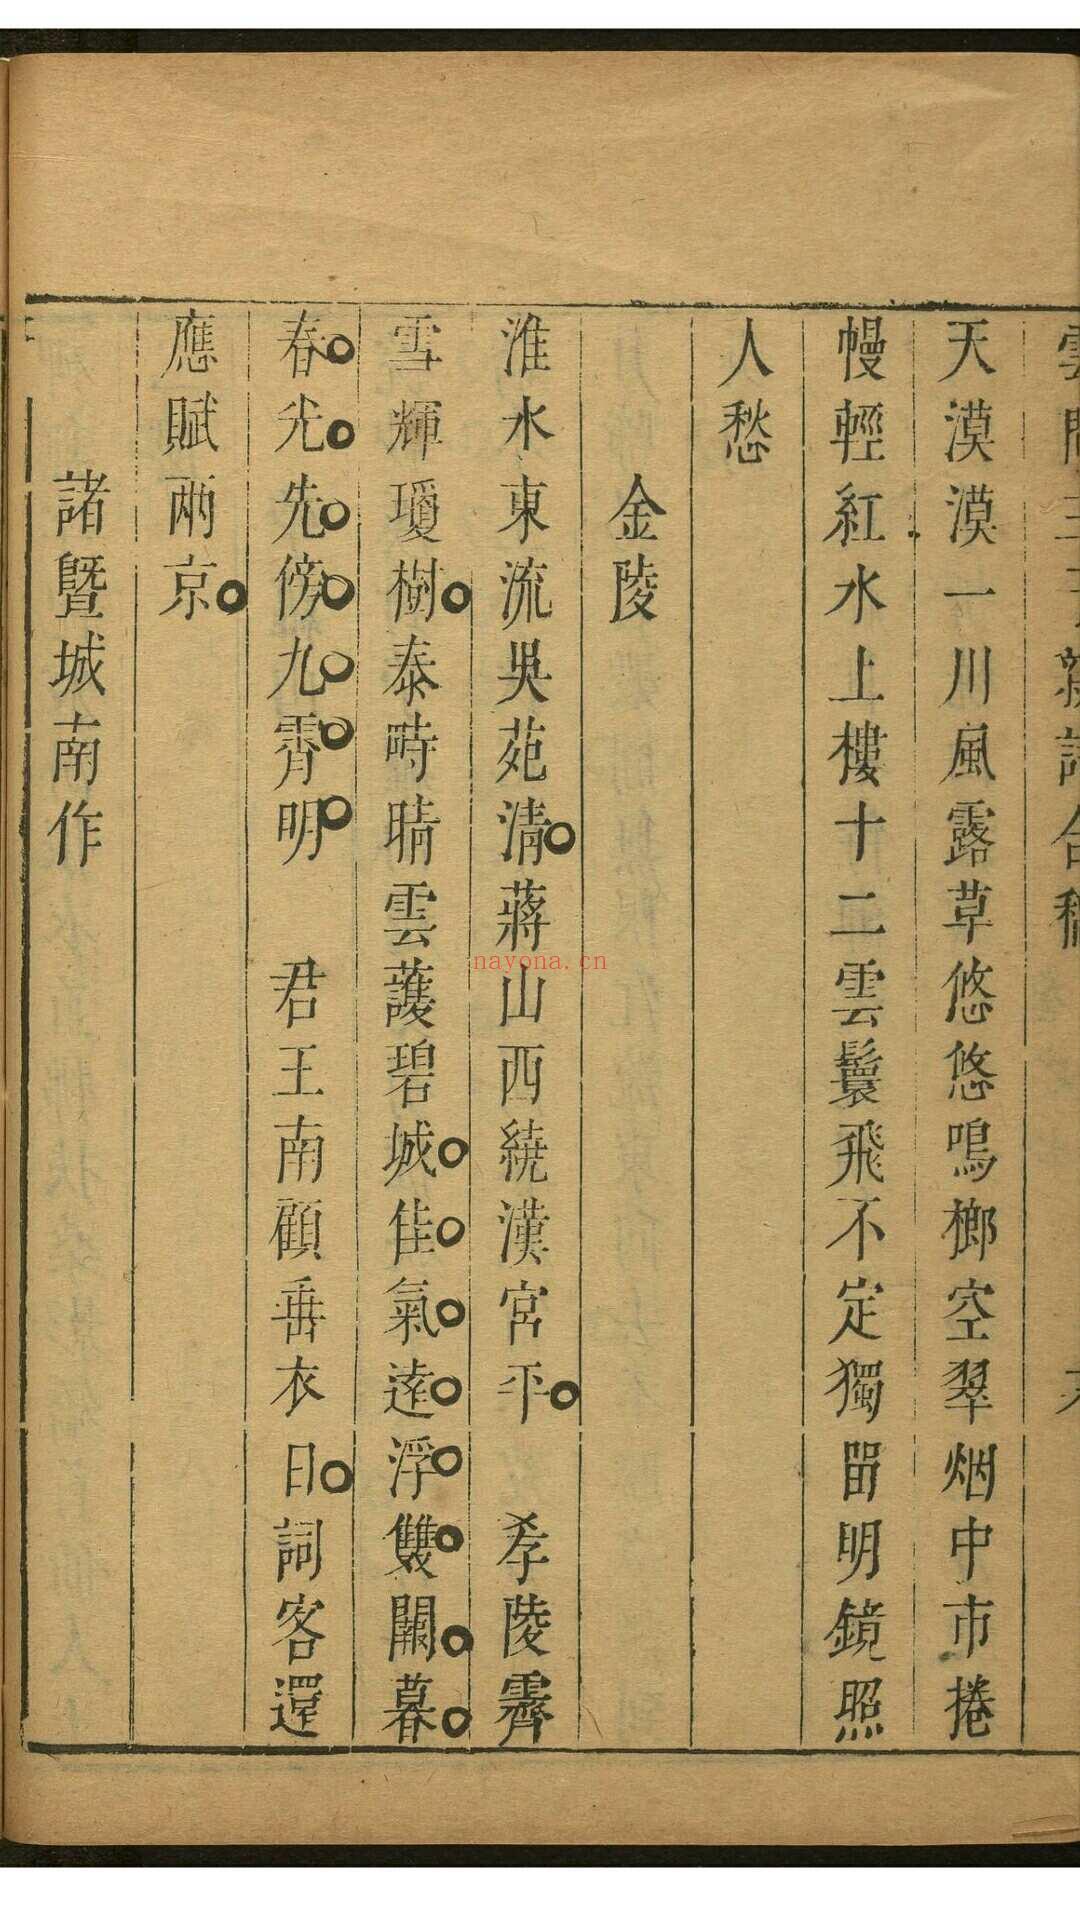 雲間三子新詩合稿
天漠漠一川風露草悠悠鳴榔空翠烟中市捲
幔輕紅水上樓十二雲鬟飛不定獨留明鏡照
人愁
金陵
淮水東流吳苑清蔣山西繞漢宮平 孝陵霽
雪輝瓊樹泰畤晴雲護碧城佳氣遠浮雙闕暮
春光先傍九霄明 君王南顧垂衣日詞客還
應賦兩京
諸暨城南作
nayona.cn